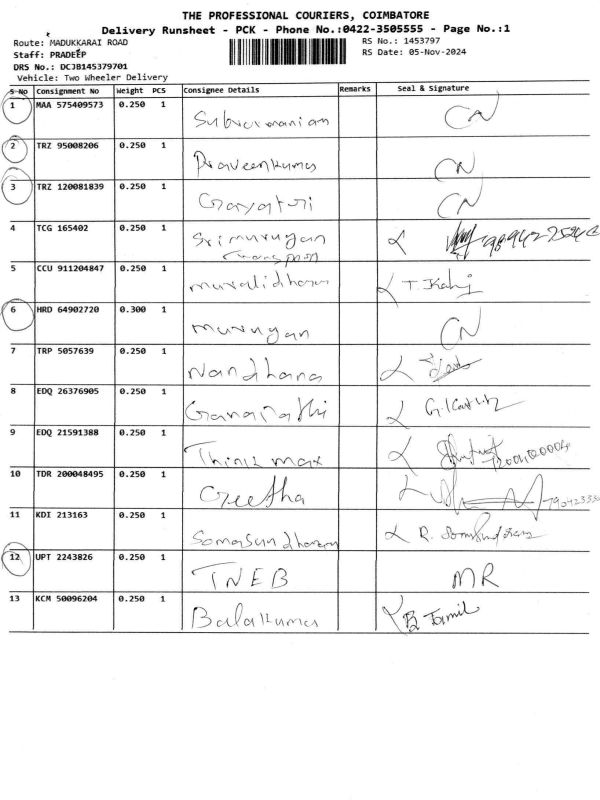 THE PROFESSIONAL COURIERS, COIMBATORE
Delivery Runsheet - PCK - Phone No.:0422-3505555 - Page No.:1
Route: MADUKKARAI ROAD
RS No.: 1453797
Staff: PRADEEP
RS Date: 05-Nov-2024
DRS No.: DCJB145379701
Vehicle: Two Wheeler Delivery
S No Consignment No Weight PCS Consignee Details Remarks Seal & Signature
1 MAA 575409573 0.250 1 Subramanian CN
2 TRZ 95008206 0.250 1 Praveenkumar CN
3 TRZ 120081839 0.250 1 Gayatri CN
4 TCG 165402 0.250 1 Srimurugan
5 CCU 911204847 0.250 1 muralidharan
6 HRD 64902720 0.300 1 murugan CN
7 TRP 5057639 0.250 1 Nandhana
8 EDQ 26376905 0.250 1 Ganapathi
9 EDQ 21591388 0.250 1 Think max
10 TDR 200048495 0.250 1 Geetha
11 KDI 213163 0.250 1 Somasundharam
12 UPT 2243826 0.250 1 TNEB MR
13 KCM 50096204 0.250 1 Balakumar Tamil